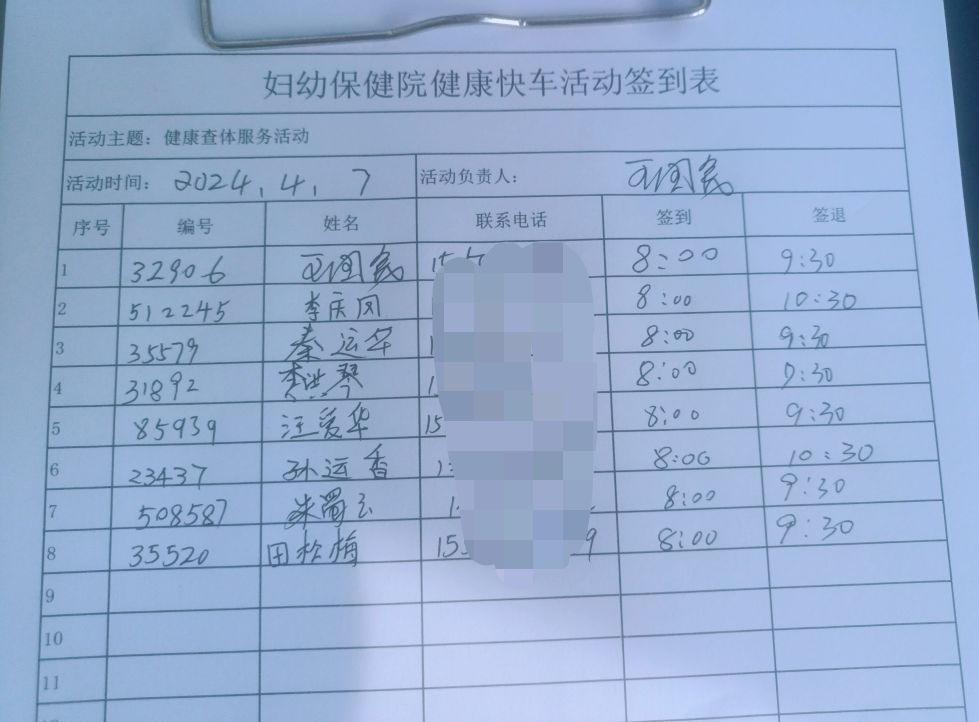 妇幼保健院健康快车活动签到表
活动主题：健康查体服务活动
活动时间： 2024.4.7 活动负责人： 王国民
序号 编号 姓名 联系电话 签到 签退
1 32906 王国民 15 8:00 9:30
2 512245 李庆凤 8:00 10:30
3 35579 秦运华 1 8:00 9:30
4 31892 李洪琴 1 8:00 9:30
5 85939 汪爱华 15 8:00 9:30
6 23437 孙运香 1 8:00 10:30
7 508587 朱蜀云 1 8:00 9:30
8 35520 田松梅 15 9 8:00 9:30
9
10
11